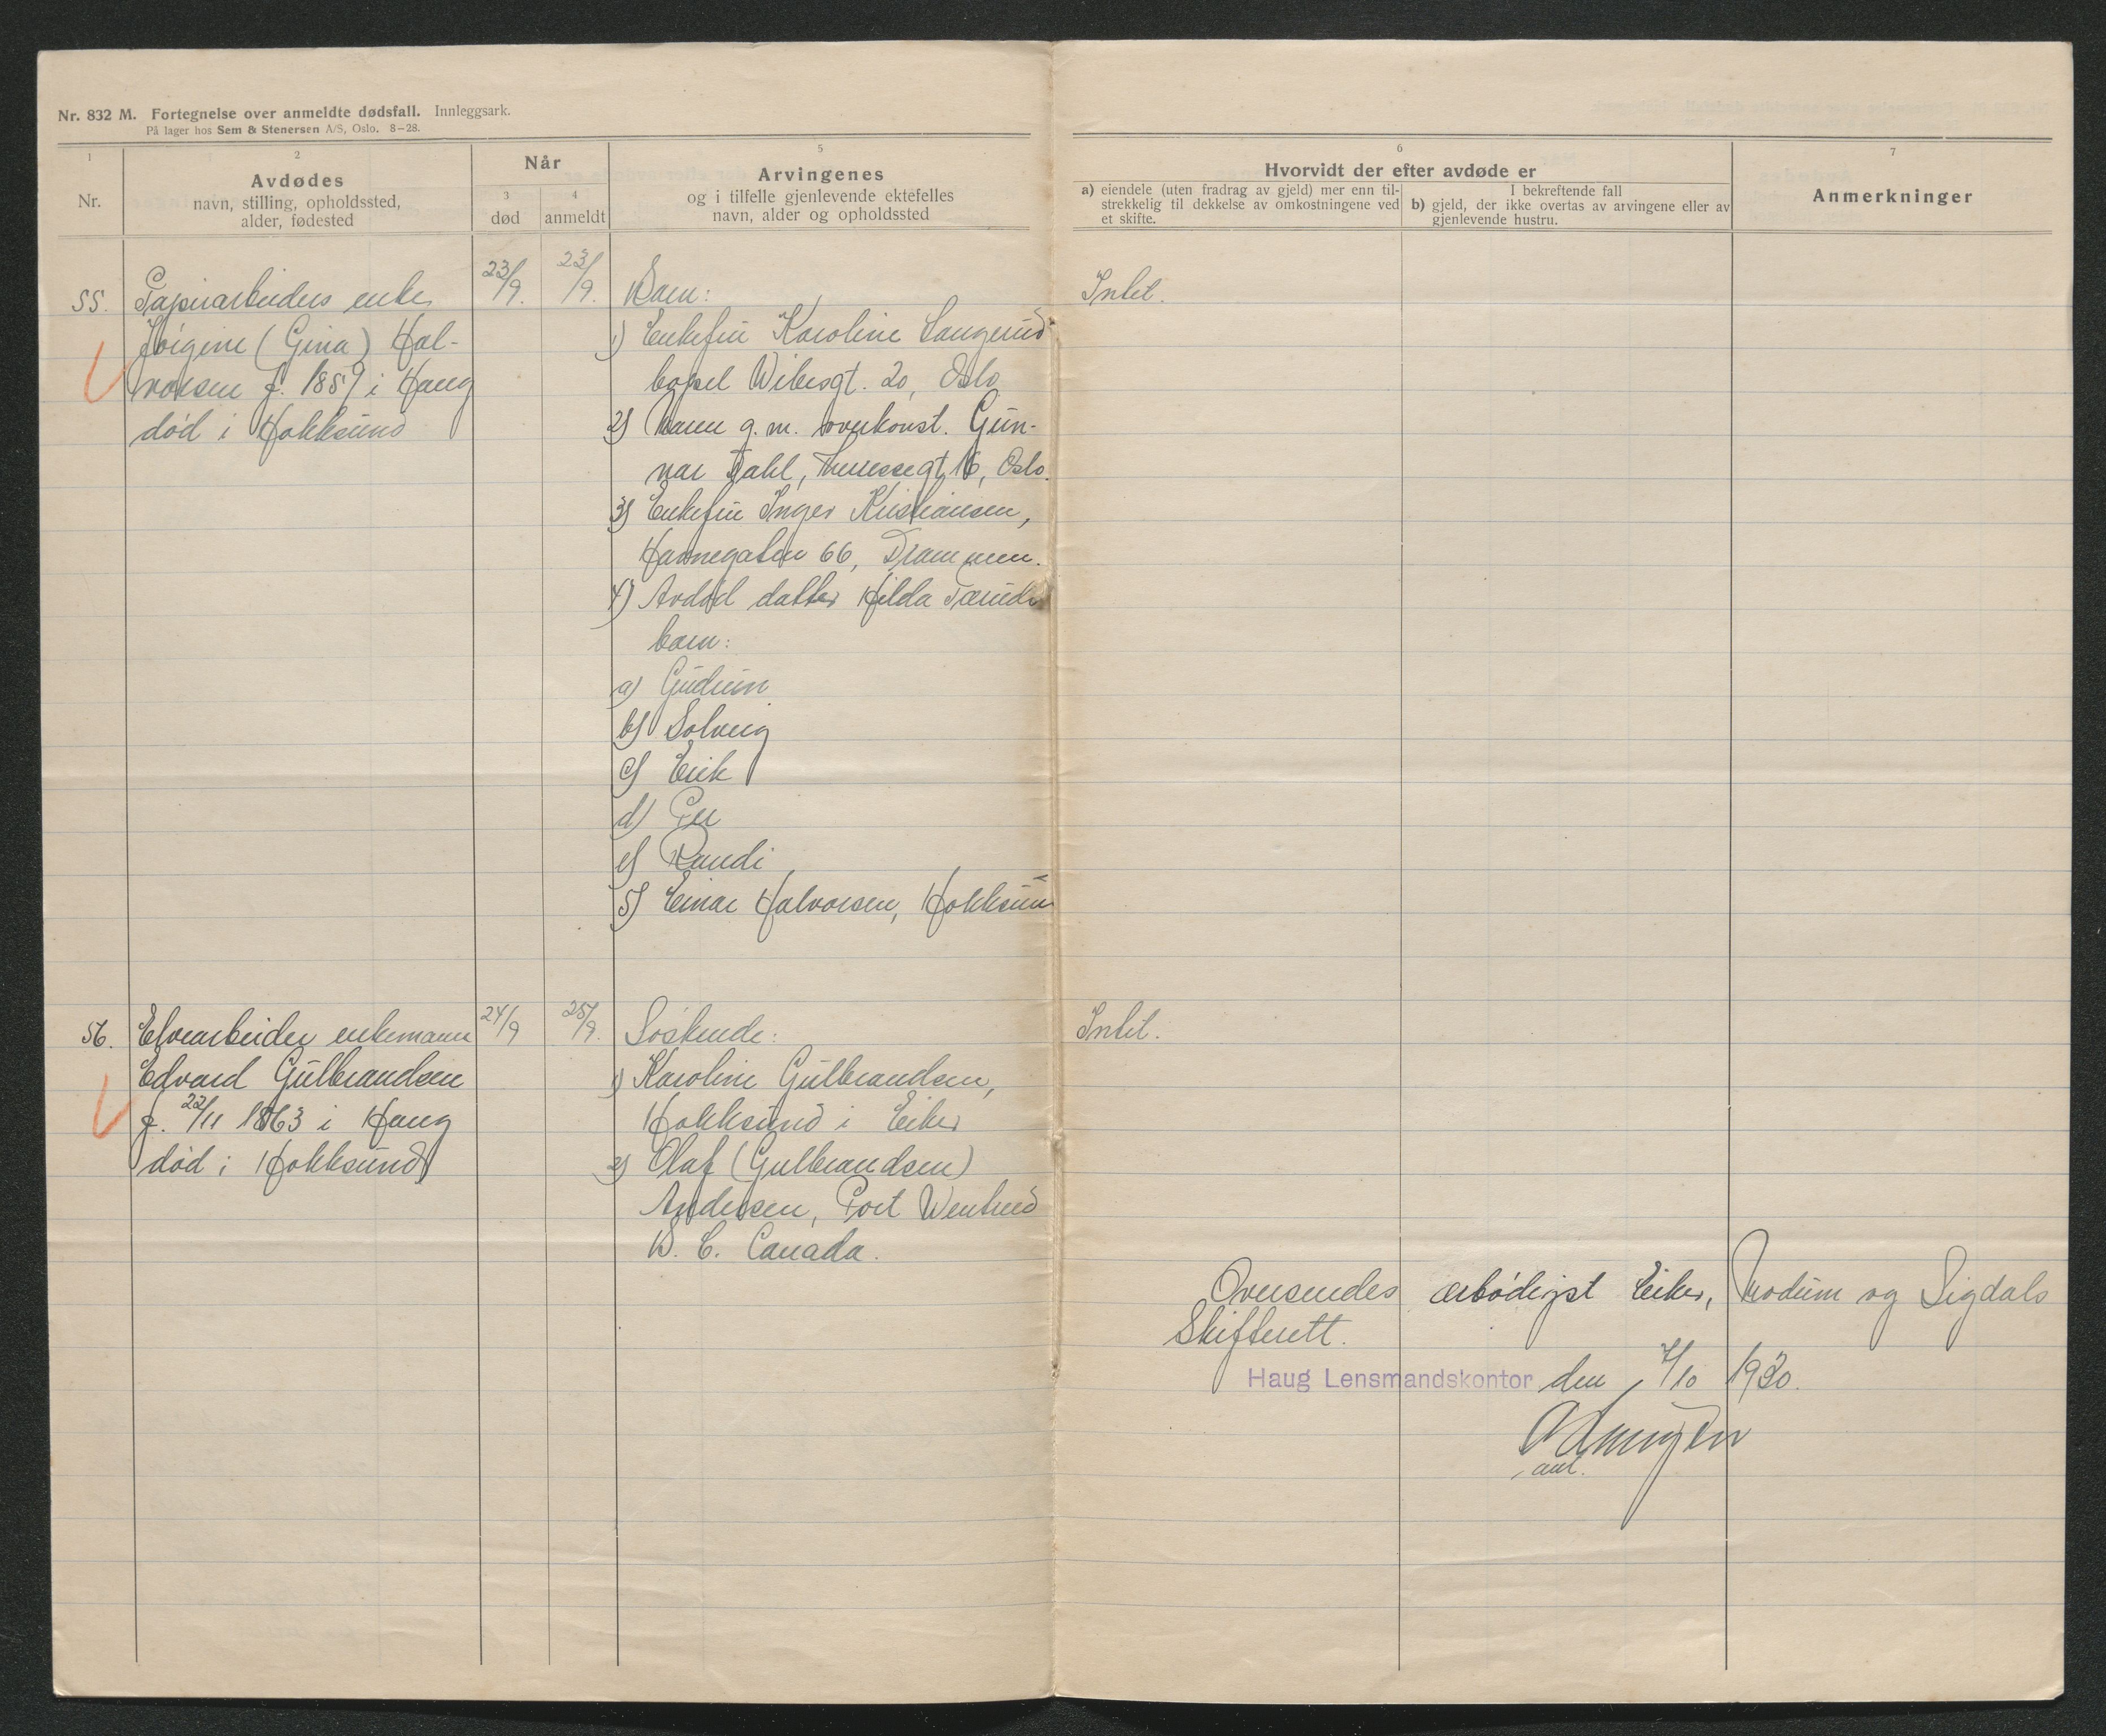 Nr. 832 M. Fortegnelse over anmeldte dødsfall. Innleggsark.
På lager hos Sem & Stenersen A/S, Oslo. 8–28.
1
Nr.
2
Avdødes
navn, stilling, opholdssted,
alder, fødested
Når
3
død
4
anmeldt
5
Arvingenes
og i tilfelle gjenlevende ektefelles
navn, alder og opholdssted
6
Hvorvidt der efter avdøde er
a) eiendele (uten fradrag av gjeld) mer enn til-
strekkelig til dekkelse av omkostningene ved
et skifte.
I bekreftende fall
b) gjeld, der ikke overtas av arvingene eller av
gjenlevende hustru.
7
Anmerkninger
55.
Papirarbeiders enke
(Gina) Hal-
vorsen f. 1859 i Haug
død i Hokksund
23/9.
23/9.
Barn:
1) Enkefru Karoline Langerud
bopel Wibesgt. 20, Oslo
2) Maren g. m. overkonst. Gun-
nar Dahl, Theresesgt 16, Oslo.
3) Enkefru Inger Kristiansen,
Havnegaten 66, Drammen.
4) Avdød datter Hilda
barn:
a) Gudrun
b) Solveig
c) Erik
d) Per
e) Randi
5) Einar Halvorsen, Hokksund
Intet.
56.
Elvearbeider enkemann
Edvard Gulbrandsen
f. 22/11 1863 i Haug
død i Hokksund
24/9
25/9.
Søskende:
1) Karoline Gulbrandsen,
Hokksund i Eiker
2) Olaf (Gulbrandsen)
Andersen, Port
B. C. Canada.
Intet.
Oversendes ærbødigst Eiker, Modum og Sigdals
Skifterett.
Haug Lensmandskontor den 7/10 1930.